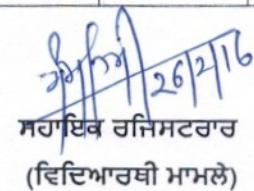 26/2/16
ਸਹਾਇਕ ਰਜਿਸਟਰਾਰ
(ਵਿਦਿਆਰਥੀ ਮਾਮਲੇ)